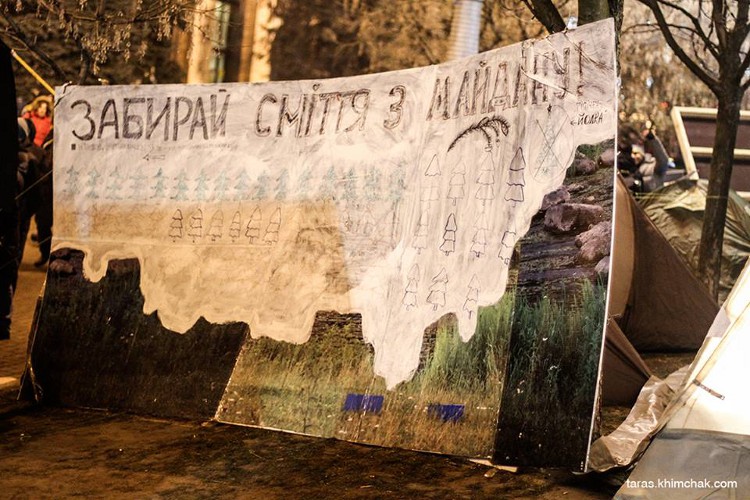 ЗАБИРАЙ СМІТТЯ З МАЙДАНУ!
ЙОЛКА
taras.khimchak.com